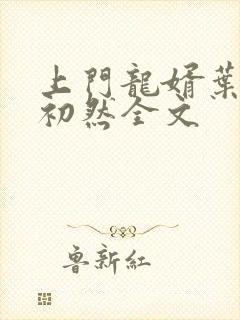 上門龍婿葉
初然全文
魯新紅